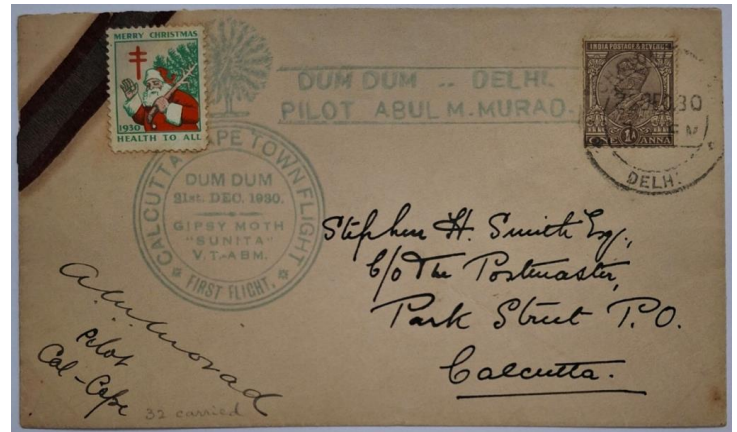 MERRY CHRISTMAS
1930
HEALTH TO ALL
DUM DUM -- DELHI.
PILOT ABUL M. MURAD.
INDIA POSTAGE & REVENUE
1A
ANNA
DEC.30
DELHI
CALCUTTA CAPE TOWN FLIGHT
DUM DUM
21st. DEC. 1930.
GIPSY MOTH
"SUNITA"
V.T.-ABM.
FIRST FLIGHT.
Stephen H. Smith Esq.,
c/o The Postmaster,
Park Street P.O.
Calcutta.
Pilot
Cal-Cape
32 carried